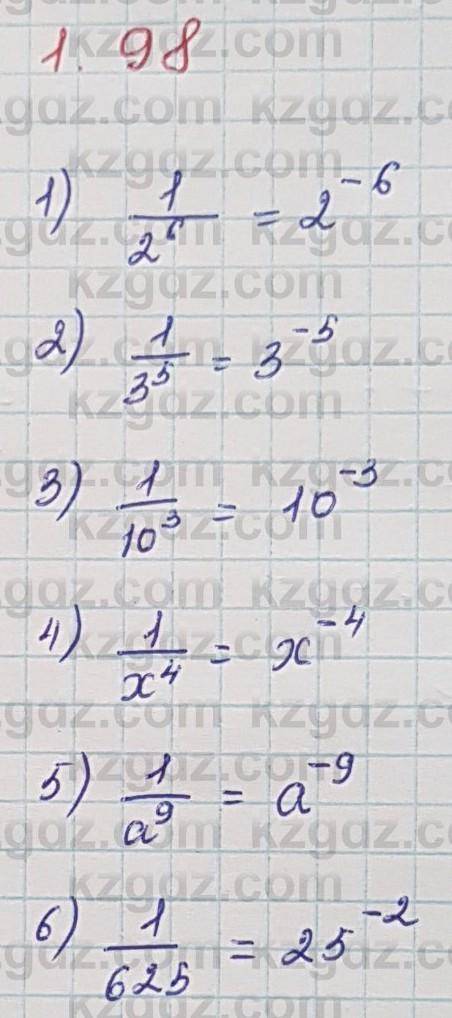 1. 98
1) 1/2^6 = 2^-6
2) 1/3^5 = 3^-5
3) 1/10^3 = 10^-3
4) 1/x^4 = x^-4
5) 1/a^9 = a^-9
6) 1/625 = 25^-2
kzgdz.com